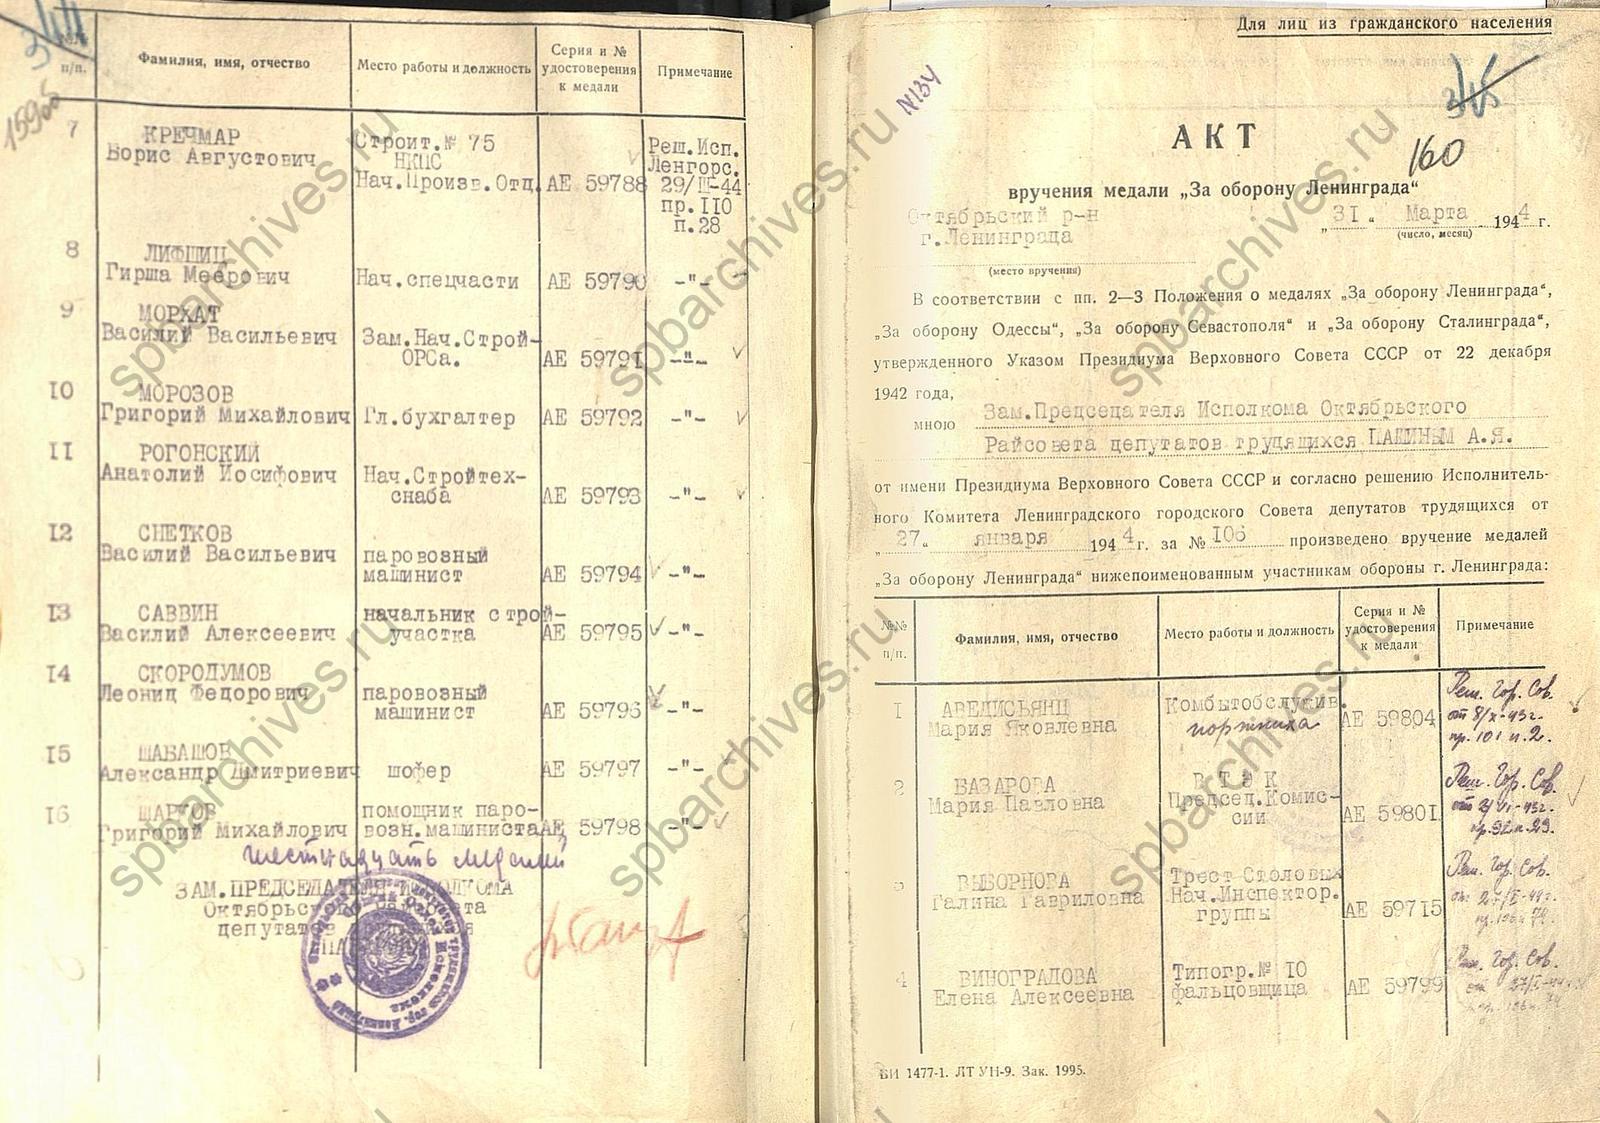 344
159об
№№ п/п.
Фамилия, имя, отчество
Место работы и должность
Серия и № удостоверения к медали
Примечание
7
КРЕЧМАР
Борис Августович
Строит.№ 75
НКПС
Нач.Произв.Отд.
АЕ 59788
Реш.Исп.
Ленгорс.
29/III-44
пр.110
п.28
8
ЛИФШИЦ
Гирша Меерович
Нач.спецчасти
АЕ 59790
-"-
9
МОРХАТ
Василий Васильевич
Зам.Нач.Строй-
ОРСа.
АЕ 59791
-"-
10
МОРОЗОВ
Григорий Михайлович
Гл.бухгалтер
АЕ 59792
-"-
11
РОГОНСКИЙ
Анатолий Иосифович
Нач.Стройтех-
снаба
АЕ 59793
-"-
12
СНЕТКОВ
Василий Васильевич
паровозный
машинист
АЕ 59794
-"-
13
САВВИН
Василий Алексеевич
начальник строй-
участка
АЕ 59795
-"-
14
СКОРОДУМОВ
Леонид Федорович
паровозный
машинист
АЕ 59796
-"-
15
ШАБАШОВ
Александр Дмитриевич
шофер
АЕ 59797
-"-
16
ШАРКОВ
Григорий Михайлович
помощник паро-
возн.машиниста
АЕ 59798
-"-
шестнадцать медалей
ЗАМ.ПРЕДСЕДАТЕЛЯ ИСПОЛКОМА
Октябрьского Райсовета
депутатов
Для лиц из гражданского населения
№134
345
160
АКТ
вручения медали „За оборону Ленинграда“
Октябрьский р-н
г.Ленинграда
„31“ Марта 1944 г.
(число, месяц)
(место вручения)
В соответствии с пп. 2—3 Положения о медалях „За оборону Ленинграда“,
„За оборону Одессы“, „За оборону Севастополя“ и „За оборону Сталинграда“,
утвержденного Указом Президиума Верховного Совета СССР от 22 декабря
1942 года,
мною Зам.Председателя Исполкома Октябрьского
Райсовета депутатов трудящихся ПАШИНЫМ А.Я.
от имени Президиума Верховного Совета СССР и согласно решению Исполнитель-
ного Комитета Ленинградского городского Совета депутатов трудящихся от
„27“ января 1944 г. за № 106 произведено вручение медалей
„За оборону Ленинграда“ нижепоименованным участникам обороны г. Ленинграда:
№№ п/п.
Фамилия, имя, отчество
Место работы и должность
Серия и № удостоверения к медали
Примечание
1
АВЕДИСЬЯНЦ
Мария Яковлевна
Комбытобслужив.
портниха
АЕ 59804
Реш. Гор. Сов.
от 8/X-43г.
пр. 101 п. 2.
2
БАЗАРОВА
Мария Павловна
ВТЭК
Председ.Комис-
сии
АЕ 59801
Реш. Гор. Сов.
пр. 92 п. 23.
3
ВЫБОРНОВА
Галина Гавриловна
Трест Столовых
Нач.Инспектор.
группы
АЕ 59715
Реш. Гор. Сов.
от 27/I-44г.
пр. 106 п. 74.
4
ВИНОГРАДОВА
Елена Алексеевна
Типогр.№ 10
фальцовщица
АЕ 59799
Реш. Гор. Сов.
от 27/I-44г.
БИ 1477-1. ЛТ УН-9. Зак. 1995.
spbarchives.ru